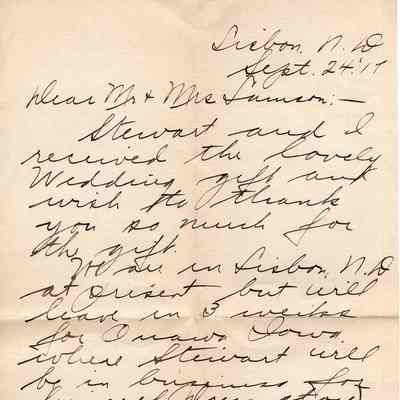 Lisbon, N. D
Sept. 24. '17
Dear Mr + Mrs Samson:—
Stewart and I
received the lovely
Wedding gift and
wish to thank
you so much for
the gift.
We are in Lisbon, N. D
at present but will
leave in 3 weeks
for Onawa Iowa
where Stewart will
be in business for